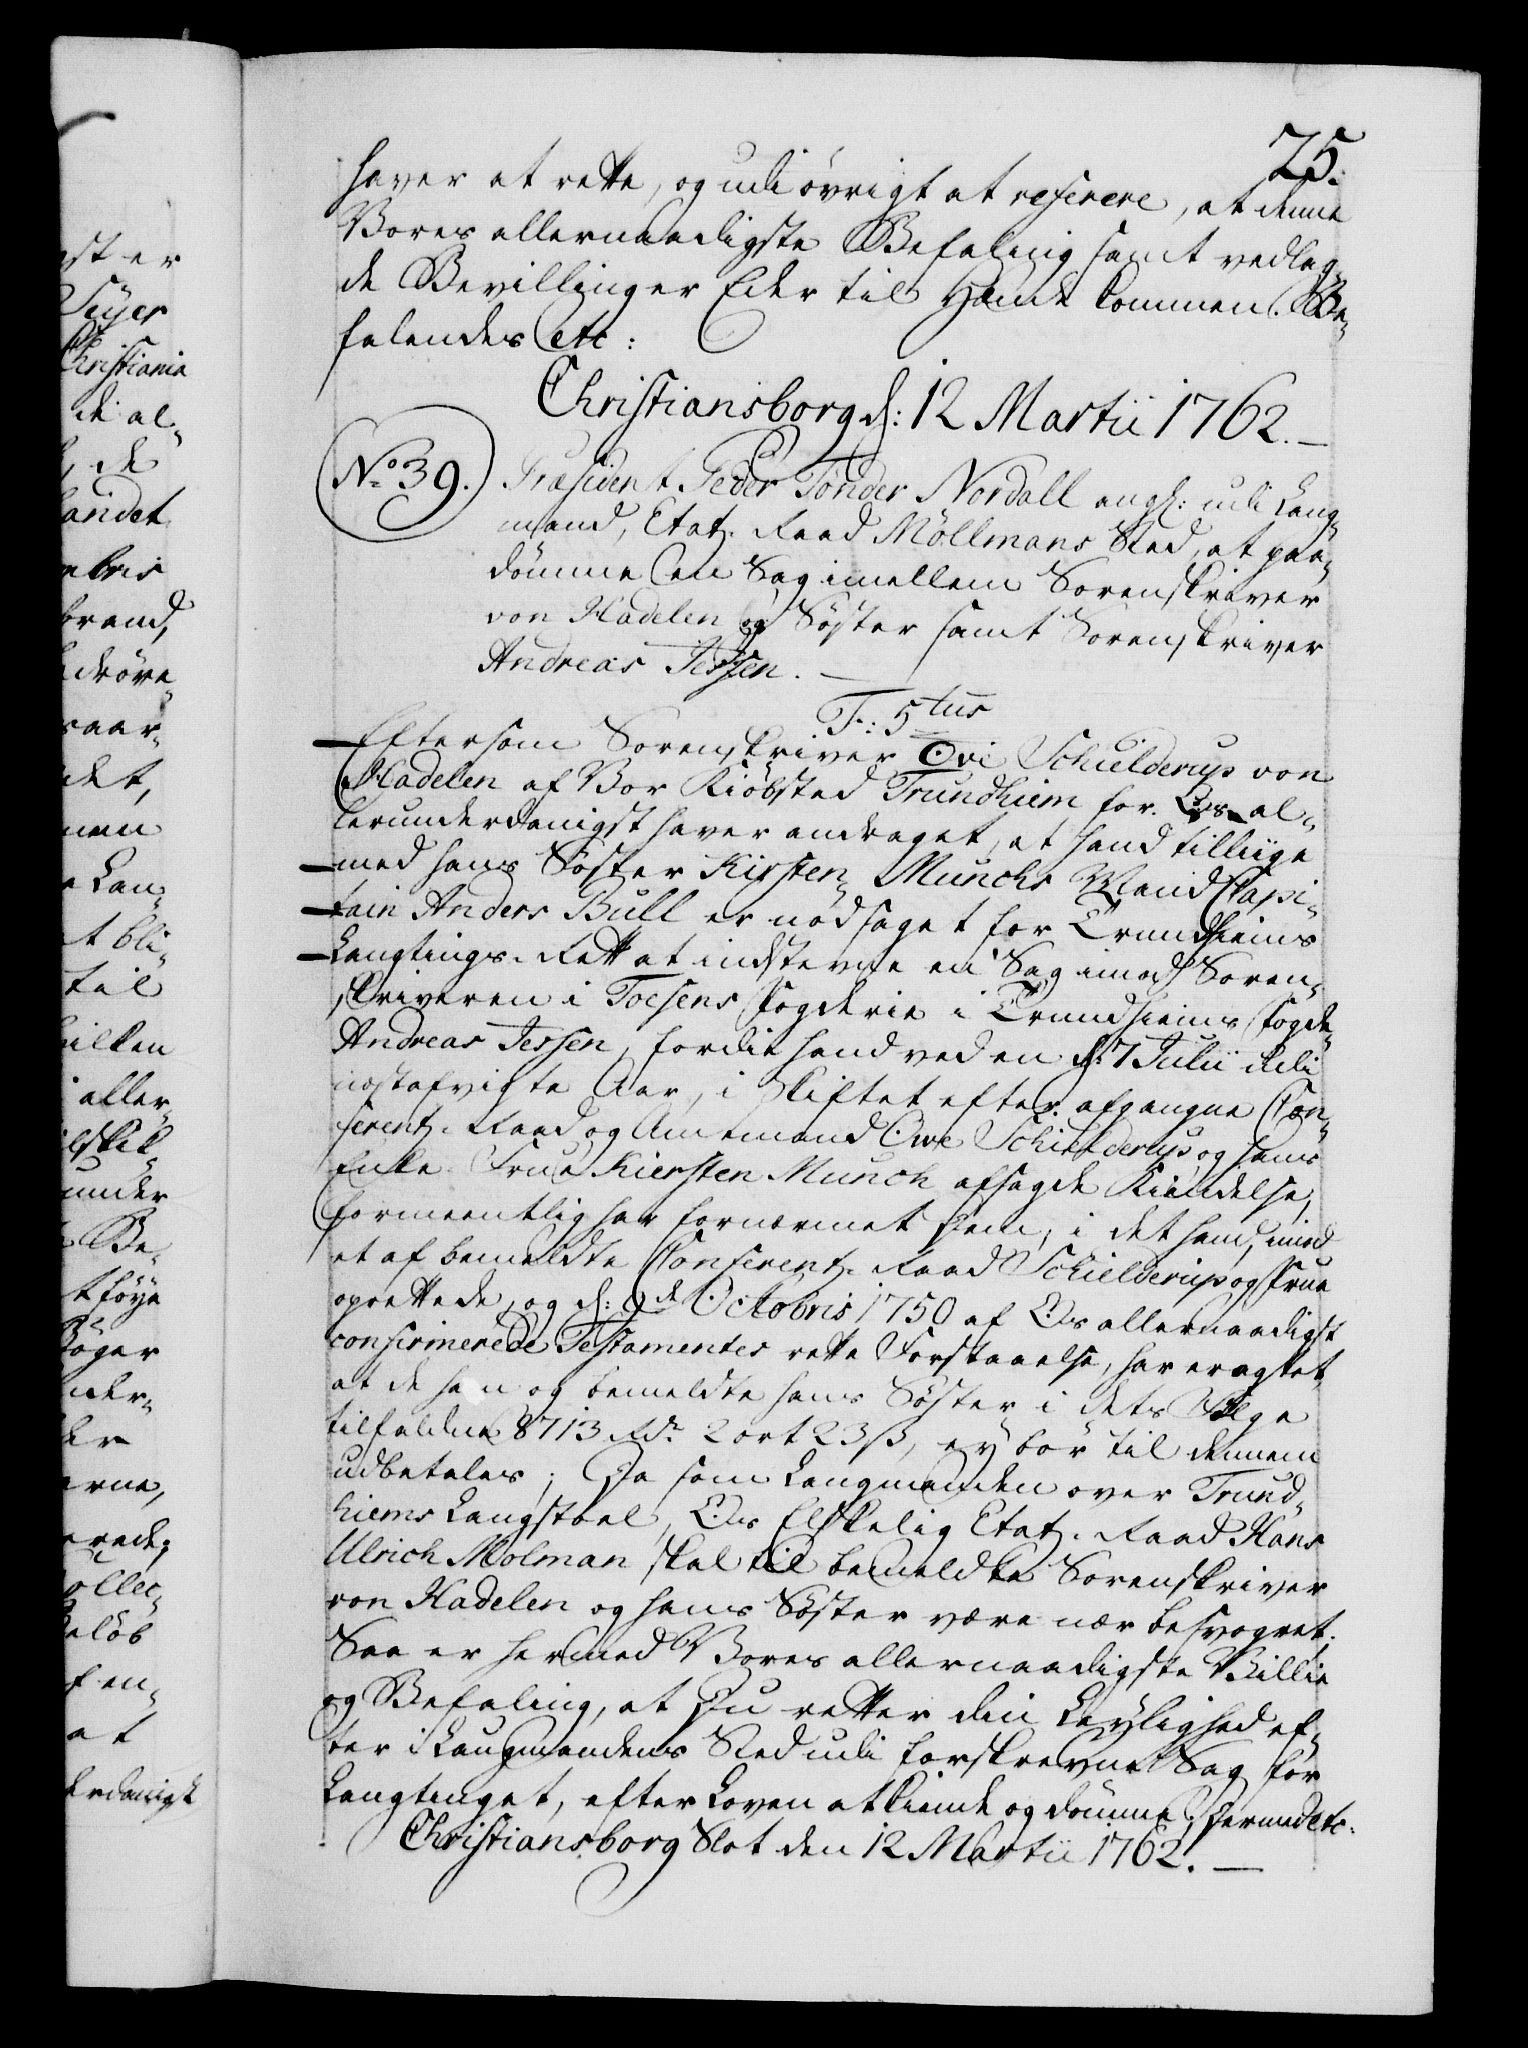 25.
haver at rette, og udi övrigt at referere, at denne
Vores allernaadigste Befaling samt vedlag-
de Bevillinger Eder til Hænde kommen. Be-
falendes etc:
Christiansborg d: 12 Martii 1762.
No 39.
Præsident Peder Tönder Nordall angl: udi Laug-
mand, Etatz-Raad Möllmans Sted, at paa-
dömme en Sag imellem Sorenskriver
von Hadelen og Söster samt Sorenskriver
Andreas Jessen.
F: 5tus
Eftersom Sorenskriver Ove Schielderup von
Hadelen af Vor Kiöbsted Trundhiem for Os al-
lerunderdanigst haver andraget, at hand tilliige
med hans Söster Kirsten Munchs Mand Capi-
tain Anders Bull er nödsaget for Trundhiems
Laugtings-Rett at indstevne en Sag imod Soren-
skriveren i Fosens Fogderie i Trundhiems
Andreas Jessen, fordi hand ved en d: 7 Julii
nestafvigte Aar, i Skiftet efter afgangne Con-
ferentz-Raad og Amtmand Ove Schielderup, og hans
Enke-Frue Kiersten Munch afsagde Kiendelse,
formeentlig har fornærmet dem, i det hand, imod
et af bemeldte Conferentz-Raad Schielderup og Frue
oprettede, og d: 9de Octobris 1750 af Os allernaadigst
confirmerede Testamentes rette Forstaaelse, har eragtet,
at de ham og bemeldte hans Söster i dets Fölge
tilfaldne 8713 Rdr 2 ort 23 s, ey bör til dennem
udbetales; Da som Laugmanden over Trund-
hiems Laugstoel, Os Elskelig Etatz-Raad Hans
Ulrich Molman skal til bemeldte Sorenskriver
von Hadelen og hans Söster være nær besvogret;
Saa er hermed Vores allernaadigste Villie
og Befaling, at Du retter din Leylighed ef-
ter i Laugmandens Sted udi forskrevne Sag for
Laugtinget, efter Loven at kiende og dömme; Dermed etc.
Christiansborg Slot den 12 Martii 1762.